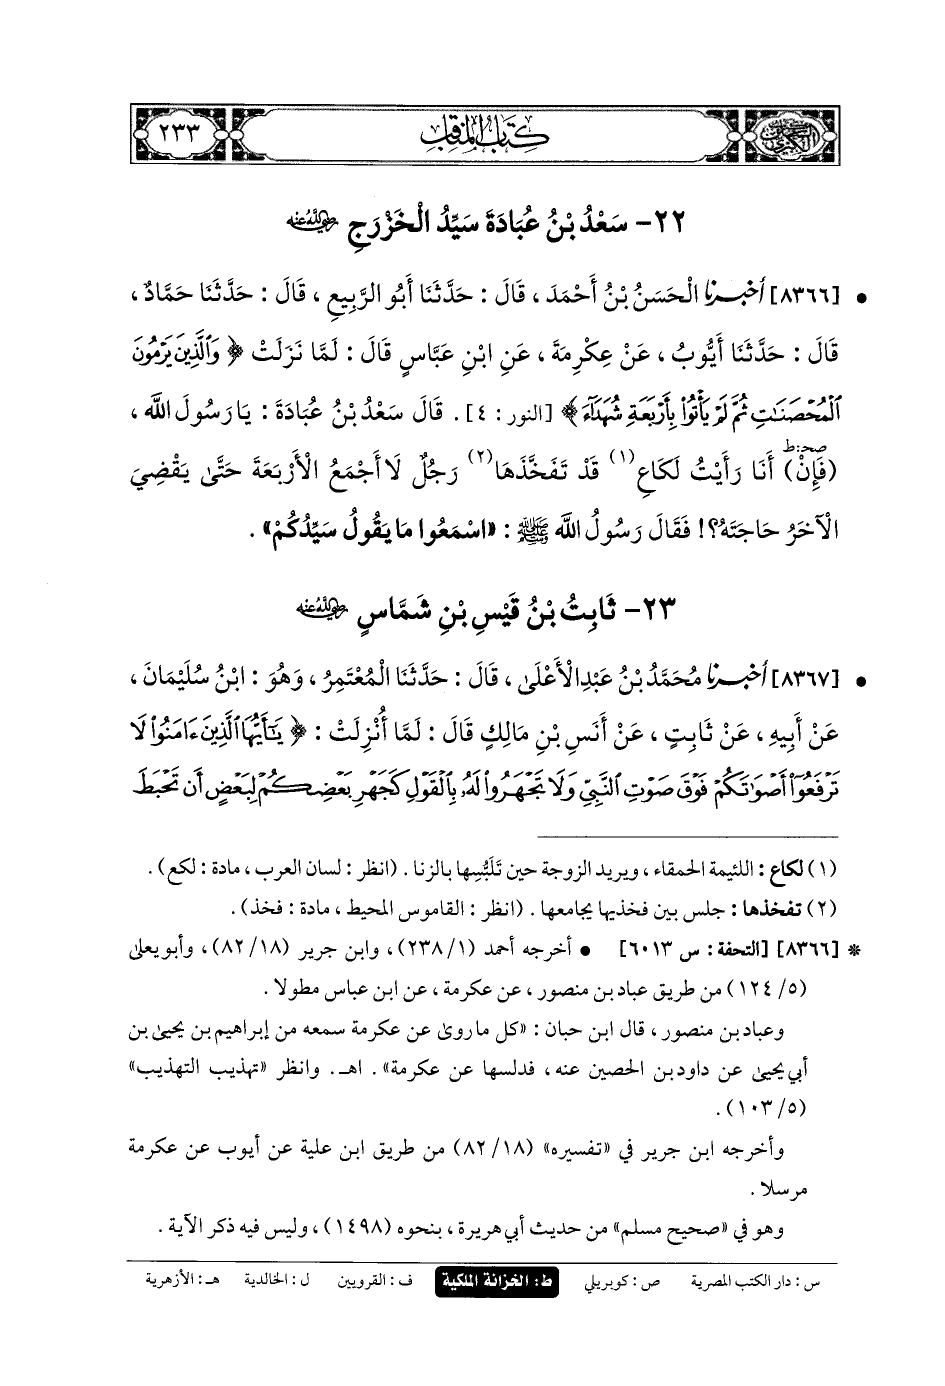 كتاب المناقب
٢٣٣
٢٢- سَعْدُ بْنُ عُبَادَةَ سَيِّدُ الْخَزْرَجِ رضي الله عنه
• [٨٣٦٦] أخبرنا الْحَسَنُ بْنُ أَحْمَدَ ، قَالَ : حَدَّثَنَا أَبُو الرَّبِيعِ ، قَالَ : حَدَّثَنَا حَمَّادٌ ،
قَالَ : حَدَّثَنَا أَيُّوبُ ، عَنْ عِكْرِمَةَ ، عَنِ ابْنِ عَبَّاسٍ قَالَ : لَمَّا نَزَلَتْ ﴿ وَٱلَّذِينَ يَرْمُونَ
ٱلْمُحْصَنَٰتِ ثُمَّ لَمْ يَأْتُوا۟ بِأَرْبَعَةِ شُهَدَآءَ ﴾ [النور : ٤] . قَالَ سَعْدُ بْنُ عُبَادَةَ : يَا رَسُولَ اللَّه ،
صح:ط
(فَإِنْ) أَنَا رَأَيْتُ لَكَاعِ(١) قَدْ تَفَخَّذَهَا(٢) رَجُلٌ لَا أَجْمَعُ الْأَرْبَعَةَ حَتَّىٰ يَقْضِيَ
الْآخَرُ حَاجَتَهُ؟! فَقَالَ رَسُولُ اللَّه ﷺ : «اسْمَعُوا مَا يَقُولُ سَيِّدُكُمْ» .
٢٣- ثَابِتُ بْنُ قَيْسِ بْنِ شَمَّاسٍ رضي الله عنه
• [٨٣٦٧] أخبرنا مُحَمَّدُ بْنُ عَبْدِ الْأَعْلَىٰ ، قَالَ : حَدَّثَنَا الْمُعْتَمِرُ ، وَهُوَ : ابْنُ سُلَيْمَانَ ،
عَنْ أَبِيهِ ، عَنْ ثَابِتٍ ، عَنْ أَنَسِ بْنِ مَالِكٍ قَالَ : لَمَّا أُنْزِلَتْ : ﴿ يَٰٓأَيُّهَا ٱلَّذِينَ ءَامَنُوا۟ لَا
تَرْفَعُوٓا۟ أَصْوَٰتَكُمْ فَوْقَ صَوْتِ ٱلنَّبِيِّ وَلَا تَجْهَرُوا۟ لَهُۥ بِٱلْقَوْلِ كَجَهْرِ بَعْضِكُمْ لِبَعْضٍ أَن تَحْبَطَ
(١) لكاع : اللئيمة الحمقاء ، ويريد الزوجة حين تَلَبُّسِها بالزنا . (انظر : لسان العرب ، مادة : لكع) .
(٢) تفخذها : جلس بين فخذيها يجامعها . (انظر : القاموس المحيط ، مادة : فخذ) .
* [٨٣٦٦] [التحفة : س ٦٠١٣] • أخرجه أحمد (١/ ٢٣٨) ، وابن جرير (١٨/ ٨٢) ، وأبو يعلى
(٥/ ١٢٤) من طريق عباد بن منصور ، عن عكرمة ، عن ابن عباس مطولا .
وعباد بن منصور ، قال ابن حبان : «كل ما روىٰ عن عكرمة سمعه من إبراهيم بن يحيى بن
أبي يحيى عن داود بن الحصين عنه ، فدلسها عن عكرمة» . اهـ. وانظر «تهذيب التهذيب»
(٥/ ١٠٣) .
وأخرجه ابن جرير في «تفسيره» (١٨/ ٨٢) من طريق ابن علية عن أيوب عن عكرمة
مرسلا .
وهو في «صحيح مسلم» من حديث أبي هريرة ، بنحوه (١٤٩٨) ، وليس فيه ذكر الآية .
س : دار الكتب المصرية ص : كوبريلي ط : الخزانة الملكية ف : القرويين ل : الخالدية هـ : الأزهرية